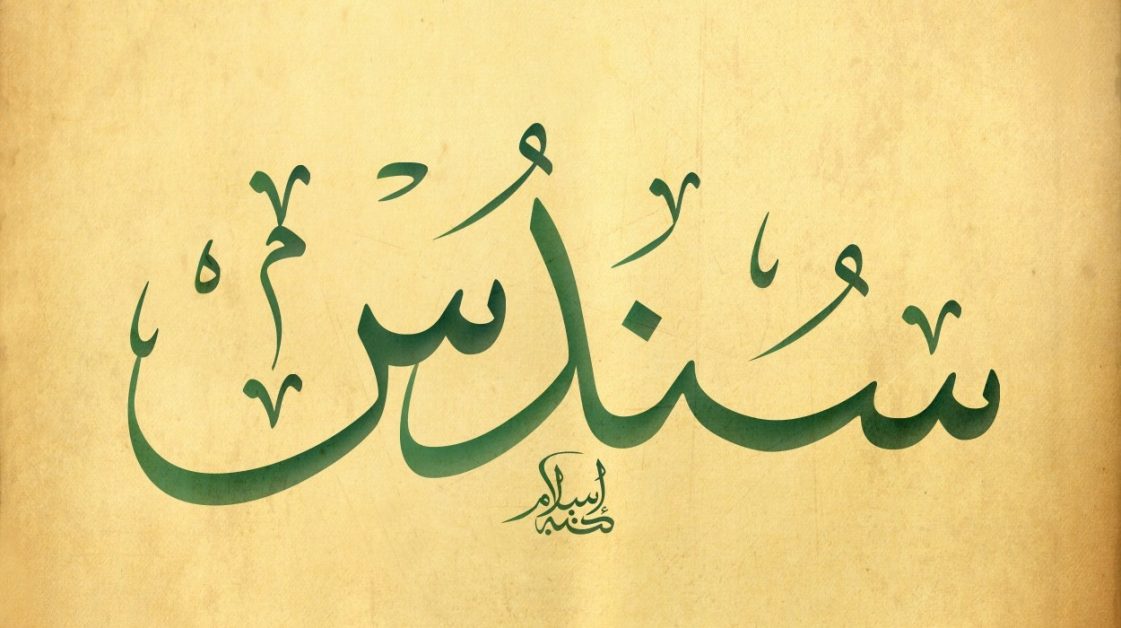 سُندُس
إسلام
كتبه